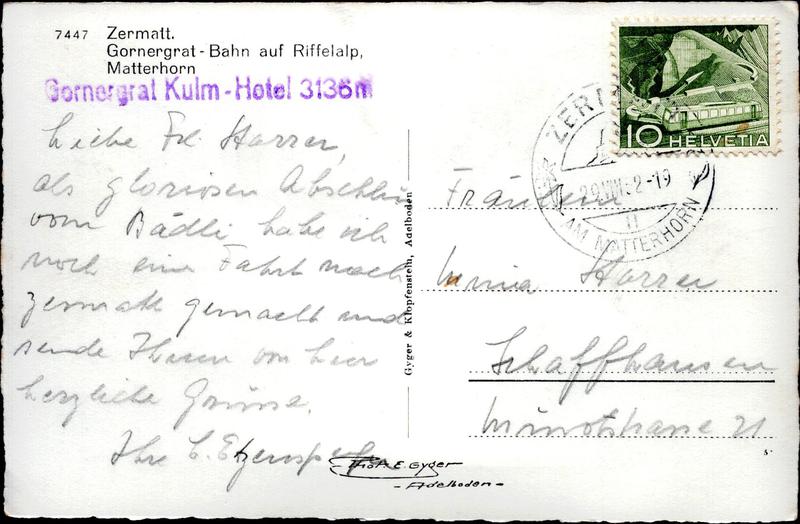 7447 Zermatt.
Gornergrat-Bahn auf Riffelalp,
Matterhorn
Gornergrat Kulm-Hotel 3136m
Liebe Frl. Harrer,
als gloriosen Abschluss
vom Bädli habe ich
noch eine Fahrt nach
Zermatt gemacht und
sende Ihnen von hier
herzliche Grüsse.
Ihre
Gyger & Klopfenstein, Adelboden
10 HELVETIA
ZERMATT
29.VIII.52-19
AM MATTERHORN
Fräulein
Harrer
Schaffhausen
21
Phot. E. Gyger
- Adelboden -